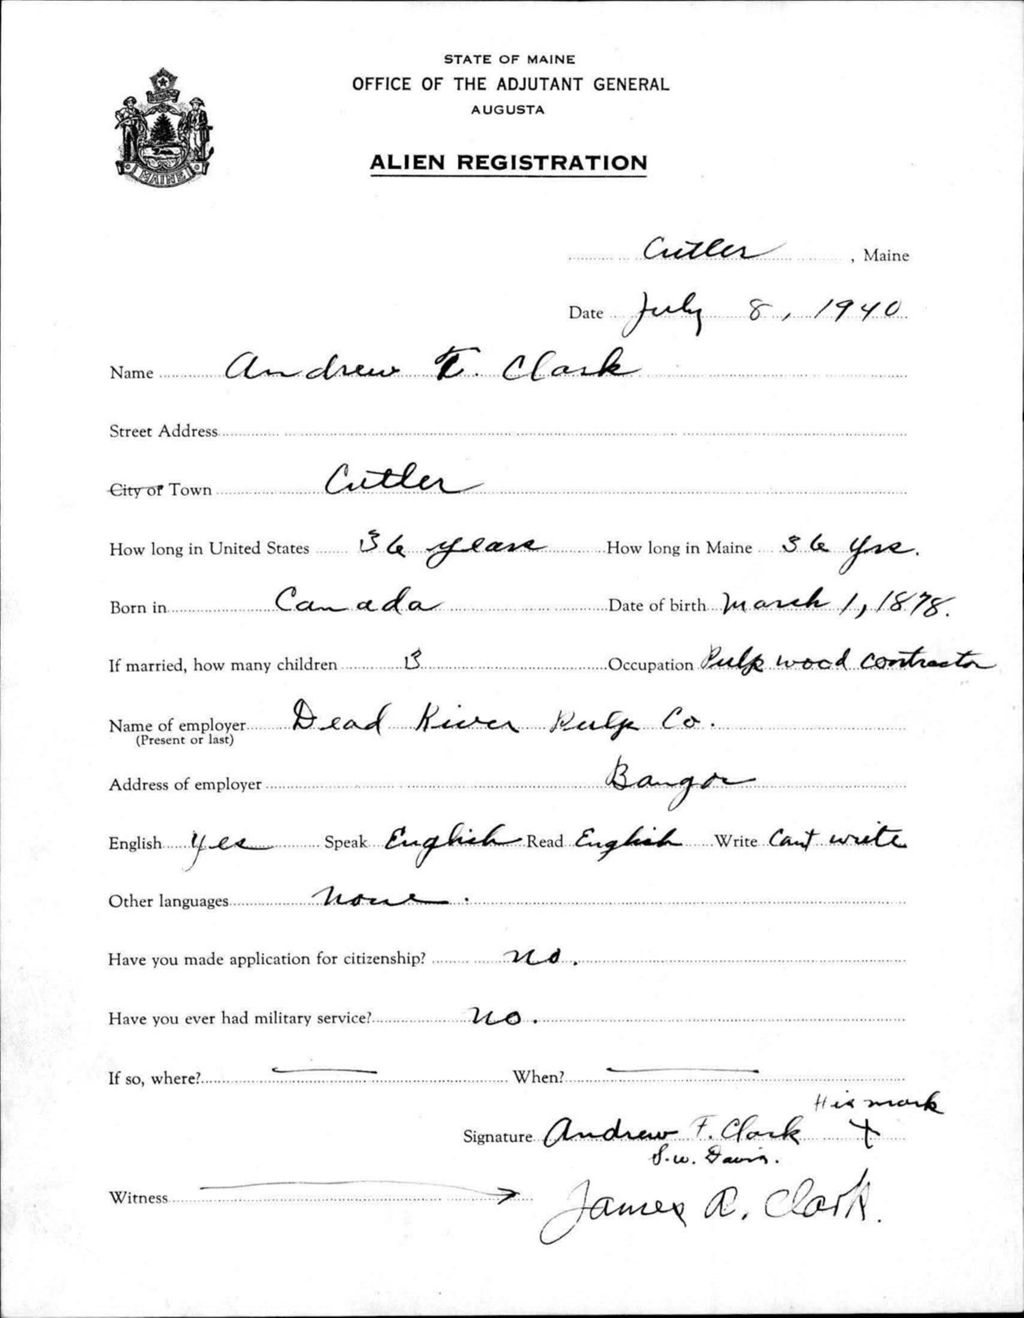 STATE OF MAINE
OFFICE OF THE ADJUTANT GENERAL
AUGUSTA
ALIEN REGISTRATION
MAINE
Cutler, Maine
Date July 8, 1940
Name Andrew F. Clark
Street Address
City or Town Cutler
How long in United States 36 years How long in Maine 36 yrs.
Born in Canada Date of birth March 1, 1878.
If married, how many children 3 Occupation Pulp wood contractor
Name of employer Dead River Pulp Co.
(Present or last)
Address of employer Bangor
English Yes Speak English Read English Write Cant write
Other languages None.
Have you made application for citizenship? no.
Have you ever had military service? no.
If so, where? When?
His mark
Signature Andrew F. Clark X
S.W. Davis.
Witness James R. Clark.